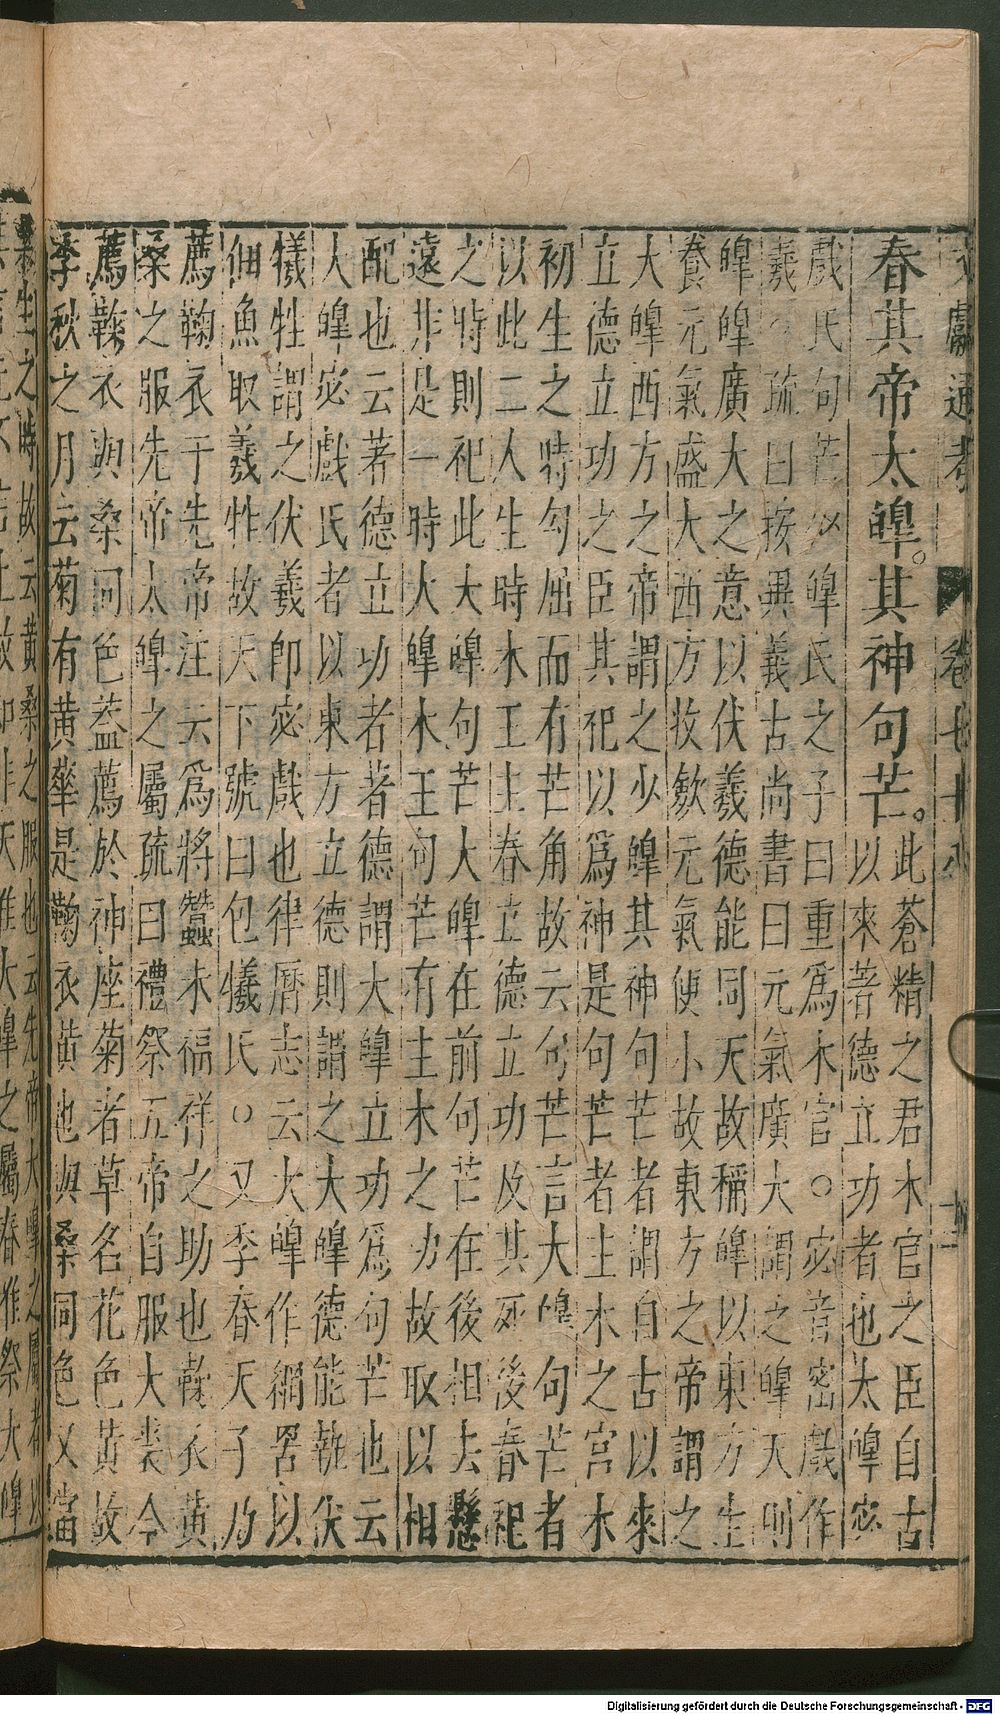 文獻通考 卷七十八 十一
春其帝太皡。其神句芒。此蒼精之君木官之臣自古
以來著德立功者也太皡宓
戲氏句芒少皡氏之子曰重爲木官○宓音密戲作
羲○疏曰按異義古尚書曰元氣廣大謂之皡天則
皡皡廣大之意以伏羲德能同天故稱皡以東方生
養元氣盛大西方收斂元氣便小故東方之帝謂之
大皡西方之帝謂之少皡其神句句芒者謂自古以來
立德立功之臣其祀以爲神是句芒者主木之官木
初生之特勾屈而有芒角故云句芒言大皡句芒者
以此二人生時木王主春立德立功及其死後春祀
之特則祀此大皡句芒大皡在前句芒在後相去懸
遠非是一時大皡木王句芒有主木之功故取以相
配也云著德立功者著德謂大皡立功爲句芒也云
人皡宓戲氏者以東方立德則謂之大皡德能執伏
犧牲謂之伏羲卽宓戲也律曆志云大皡作網罟以
佃魚取羲牲故天下號曰包犧氏○又季春天子乃
薦鞠衣于先帝注云爲將蠶求福祥之助也鞠衣黃
桑之服先帝太皡之屬疏曰禮祭五帝自服大裘今
薦鞠衣與桑同色蓋薦於神座菊者草名花色黃故
季秋之月云菊有黃華是鞠衣黃也與桑同色又當
桑生之時故云黃桑之服也云先帝大皡之屬者以
故知非天唯大皡之屬春雖祭大皡
Digitalisierung gefördert durch die Deutsche Forschungsgemeinschaft - DFG